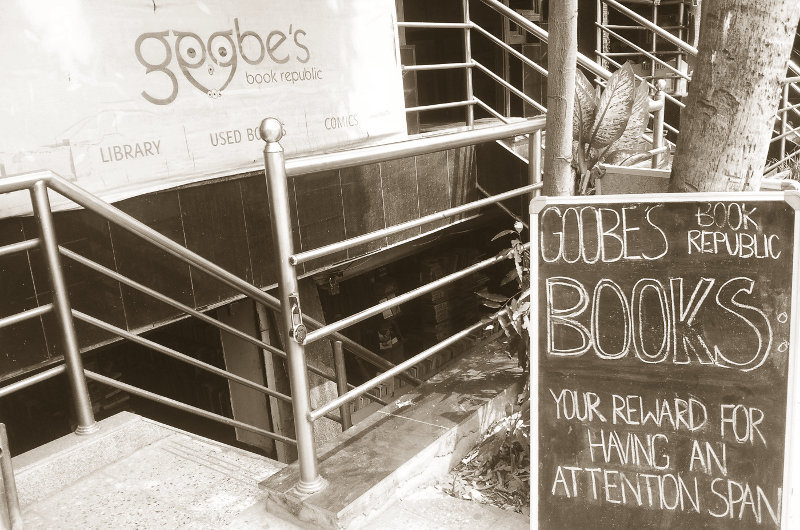 goobe's
book republic
LIBRARY
USED BOOKS
COMICS
GOOBE'S BOOK
REPUBLIC
BOOKS
YOUR REWARD FOR
HAVING AN
ATTENTION SPAN